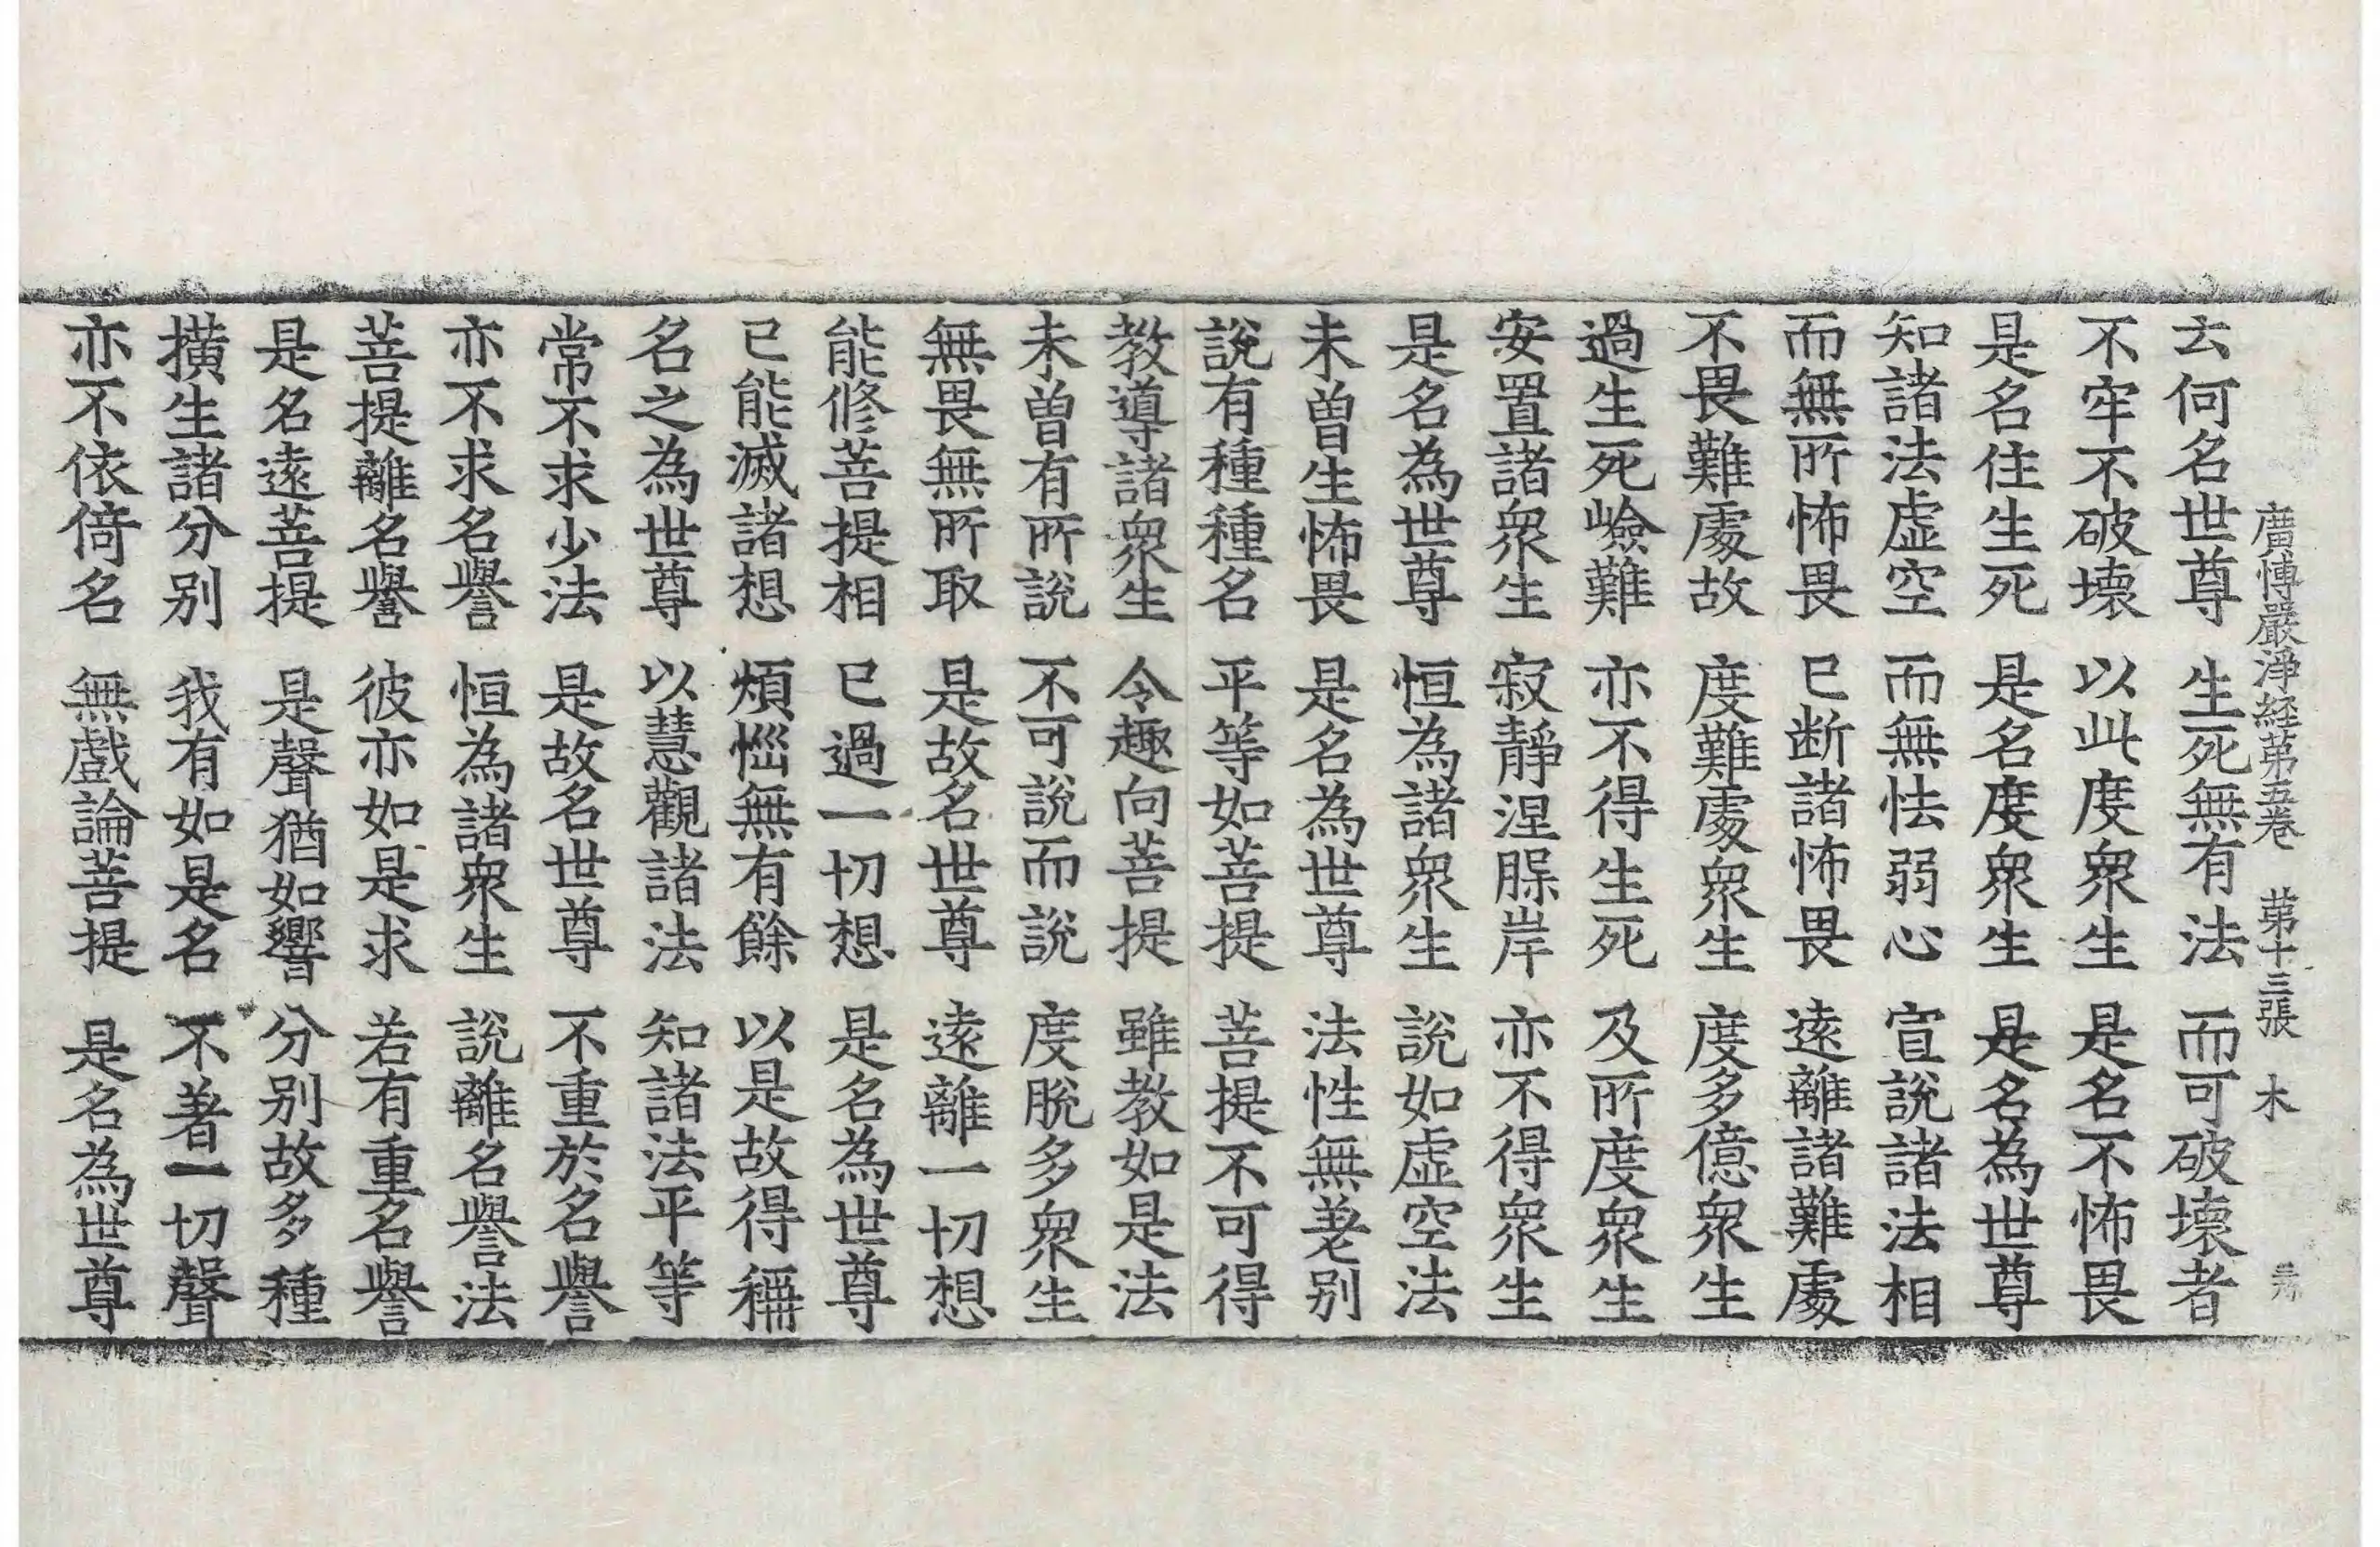 廣博嚴淨経苐五卷 苐十三張 木
云何名世尊 生死無有法 而可破壞者
不牢不破壞 以此度衆生 是名不怖畏
是名住生死 是名度衆生 是名為世尊
知諸法虛空 而無怯弱心 宣說諸法相
而無所怖畏 已断諸怖畏 遠離諸難處
不畏難處故 度難處衆生 度多億衆生
過生死嶮難 亦不得生死 及所度衆生
安置諸衆生 寂靜涅䐧岸 亦不得衆生
是名為世尊 恒為諸衆生 說如虛空法
未曾生怖畏 是名為世尊 法性無差别
說有種種名 平等如菩提 菩提不可得
教導諸衆生 令趣向菩提 雖教如是法
未曾有所說 不可說而說 度脫多衆生
無畏無所取 是故名世尊 遠離一切想
能修菩提相 已過一切想 是名為世尊
已能滅諸想 煩惱無有餘 以是故得稱
名之為世尊 以慧觀諸法 知諸法平等
常不求少法 是故名世尊 不重於名譽
亦不求名譽 恒為諸衆生 說離名譽法
菩提離名譽 彼亦如是求 若有重名譽
是名遠菩提 是聲猶如響 分别故多種
撗生諸分别 我有如是名 不著一切聲
亦不依倚名 無戲論菩提 是名為世尊